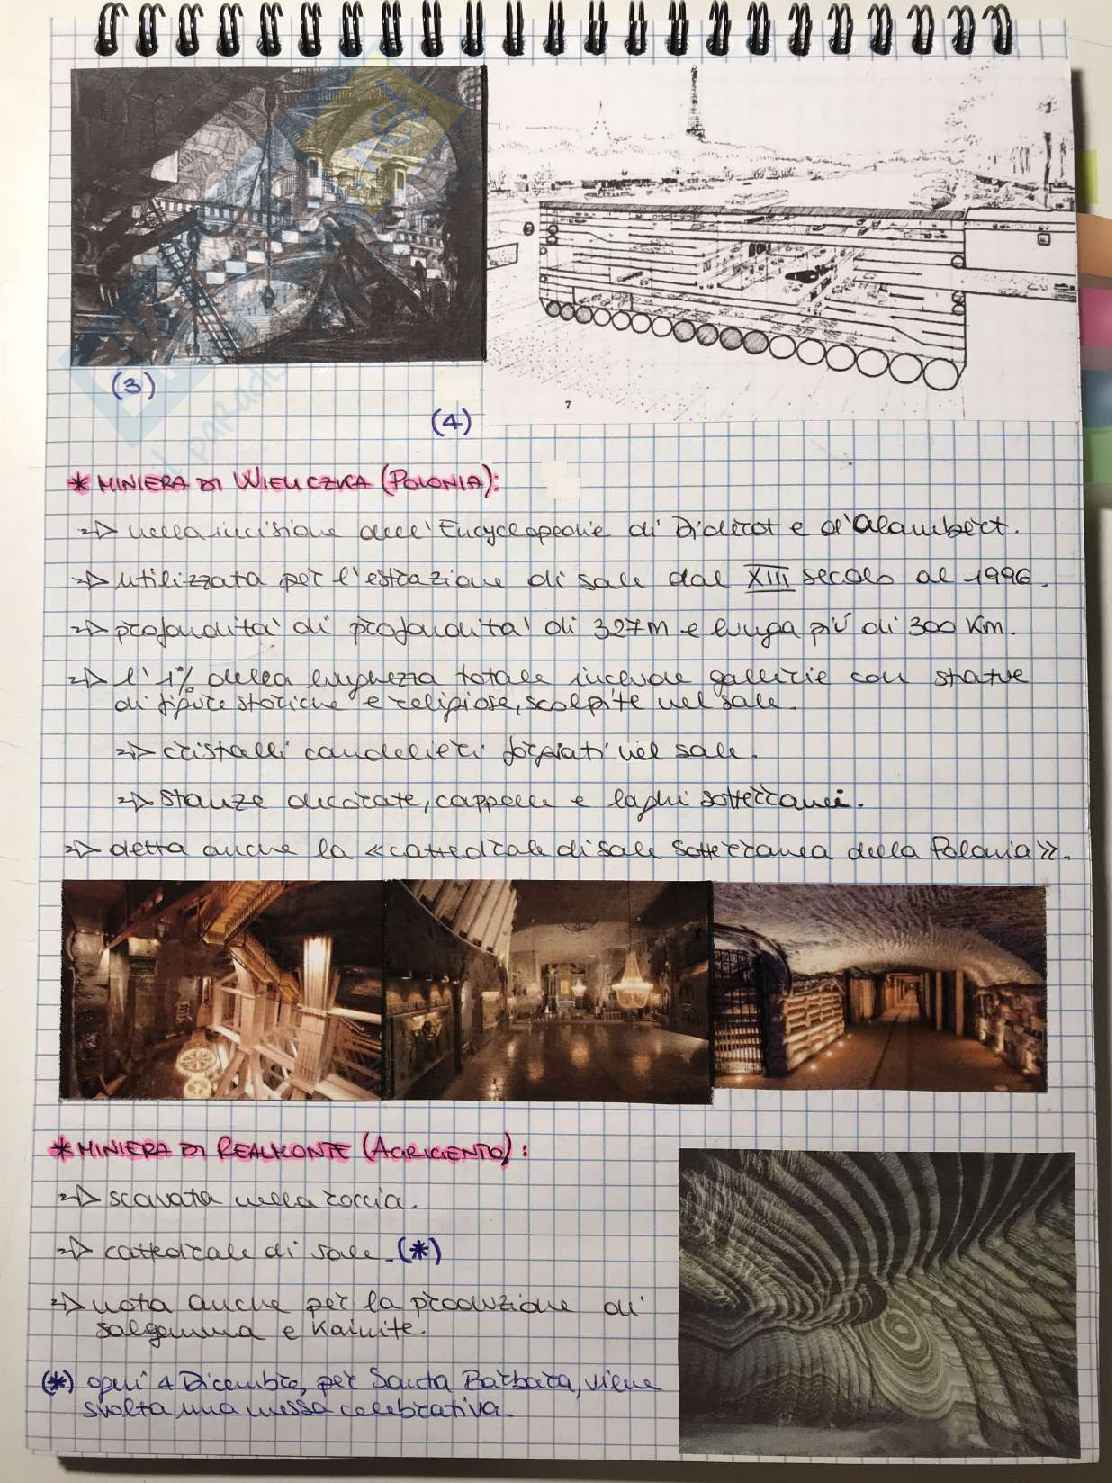 (3)
(4)
7
* MINIERA DI WIELICZKA (POLONIA):
=> nella incisione dell'Encyclopedie di Diderot e d'Alambert.
=> utilizzata per l'estrazione di sale dal XIII secolo al 1996.
=> profondita' di profondita' di 327m e lunga più di 300 Km.
=> l'1% della lunghezza totale include gallerie con statue
di figure storiche e religiose, scolpite nel sale.
=> cristalli candelieri forgiati nel sale.
=> stanze decorate, cappelle e laghi sotterranei.
=> detta anche la «cattedrale di sale sotterranea della Polonia».
* MINIERA DI REALMONTE (AGRIGENTO):
=> scavata nella roccia.
=> cattedrale di sale. (*)
=> nota anche per la produzione di
salgemma e Kainite.
(*) ogni 4 Dicembre, per Santa Barbara, viene
svolta una messa celebrativa.